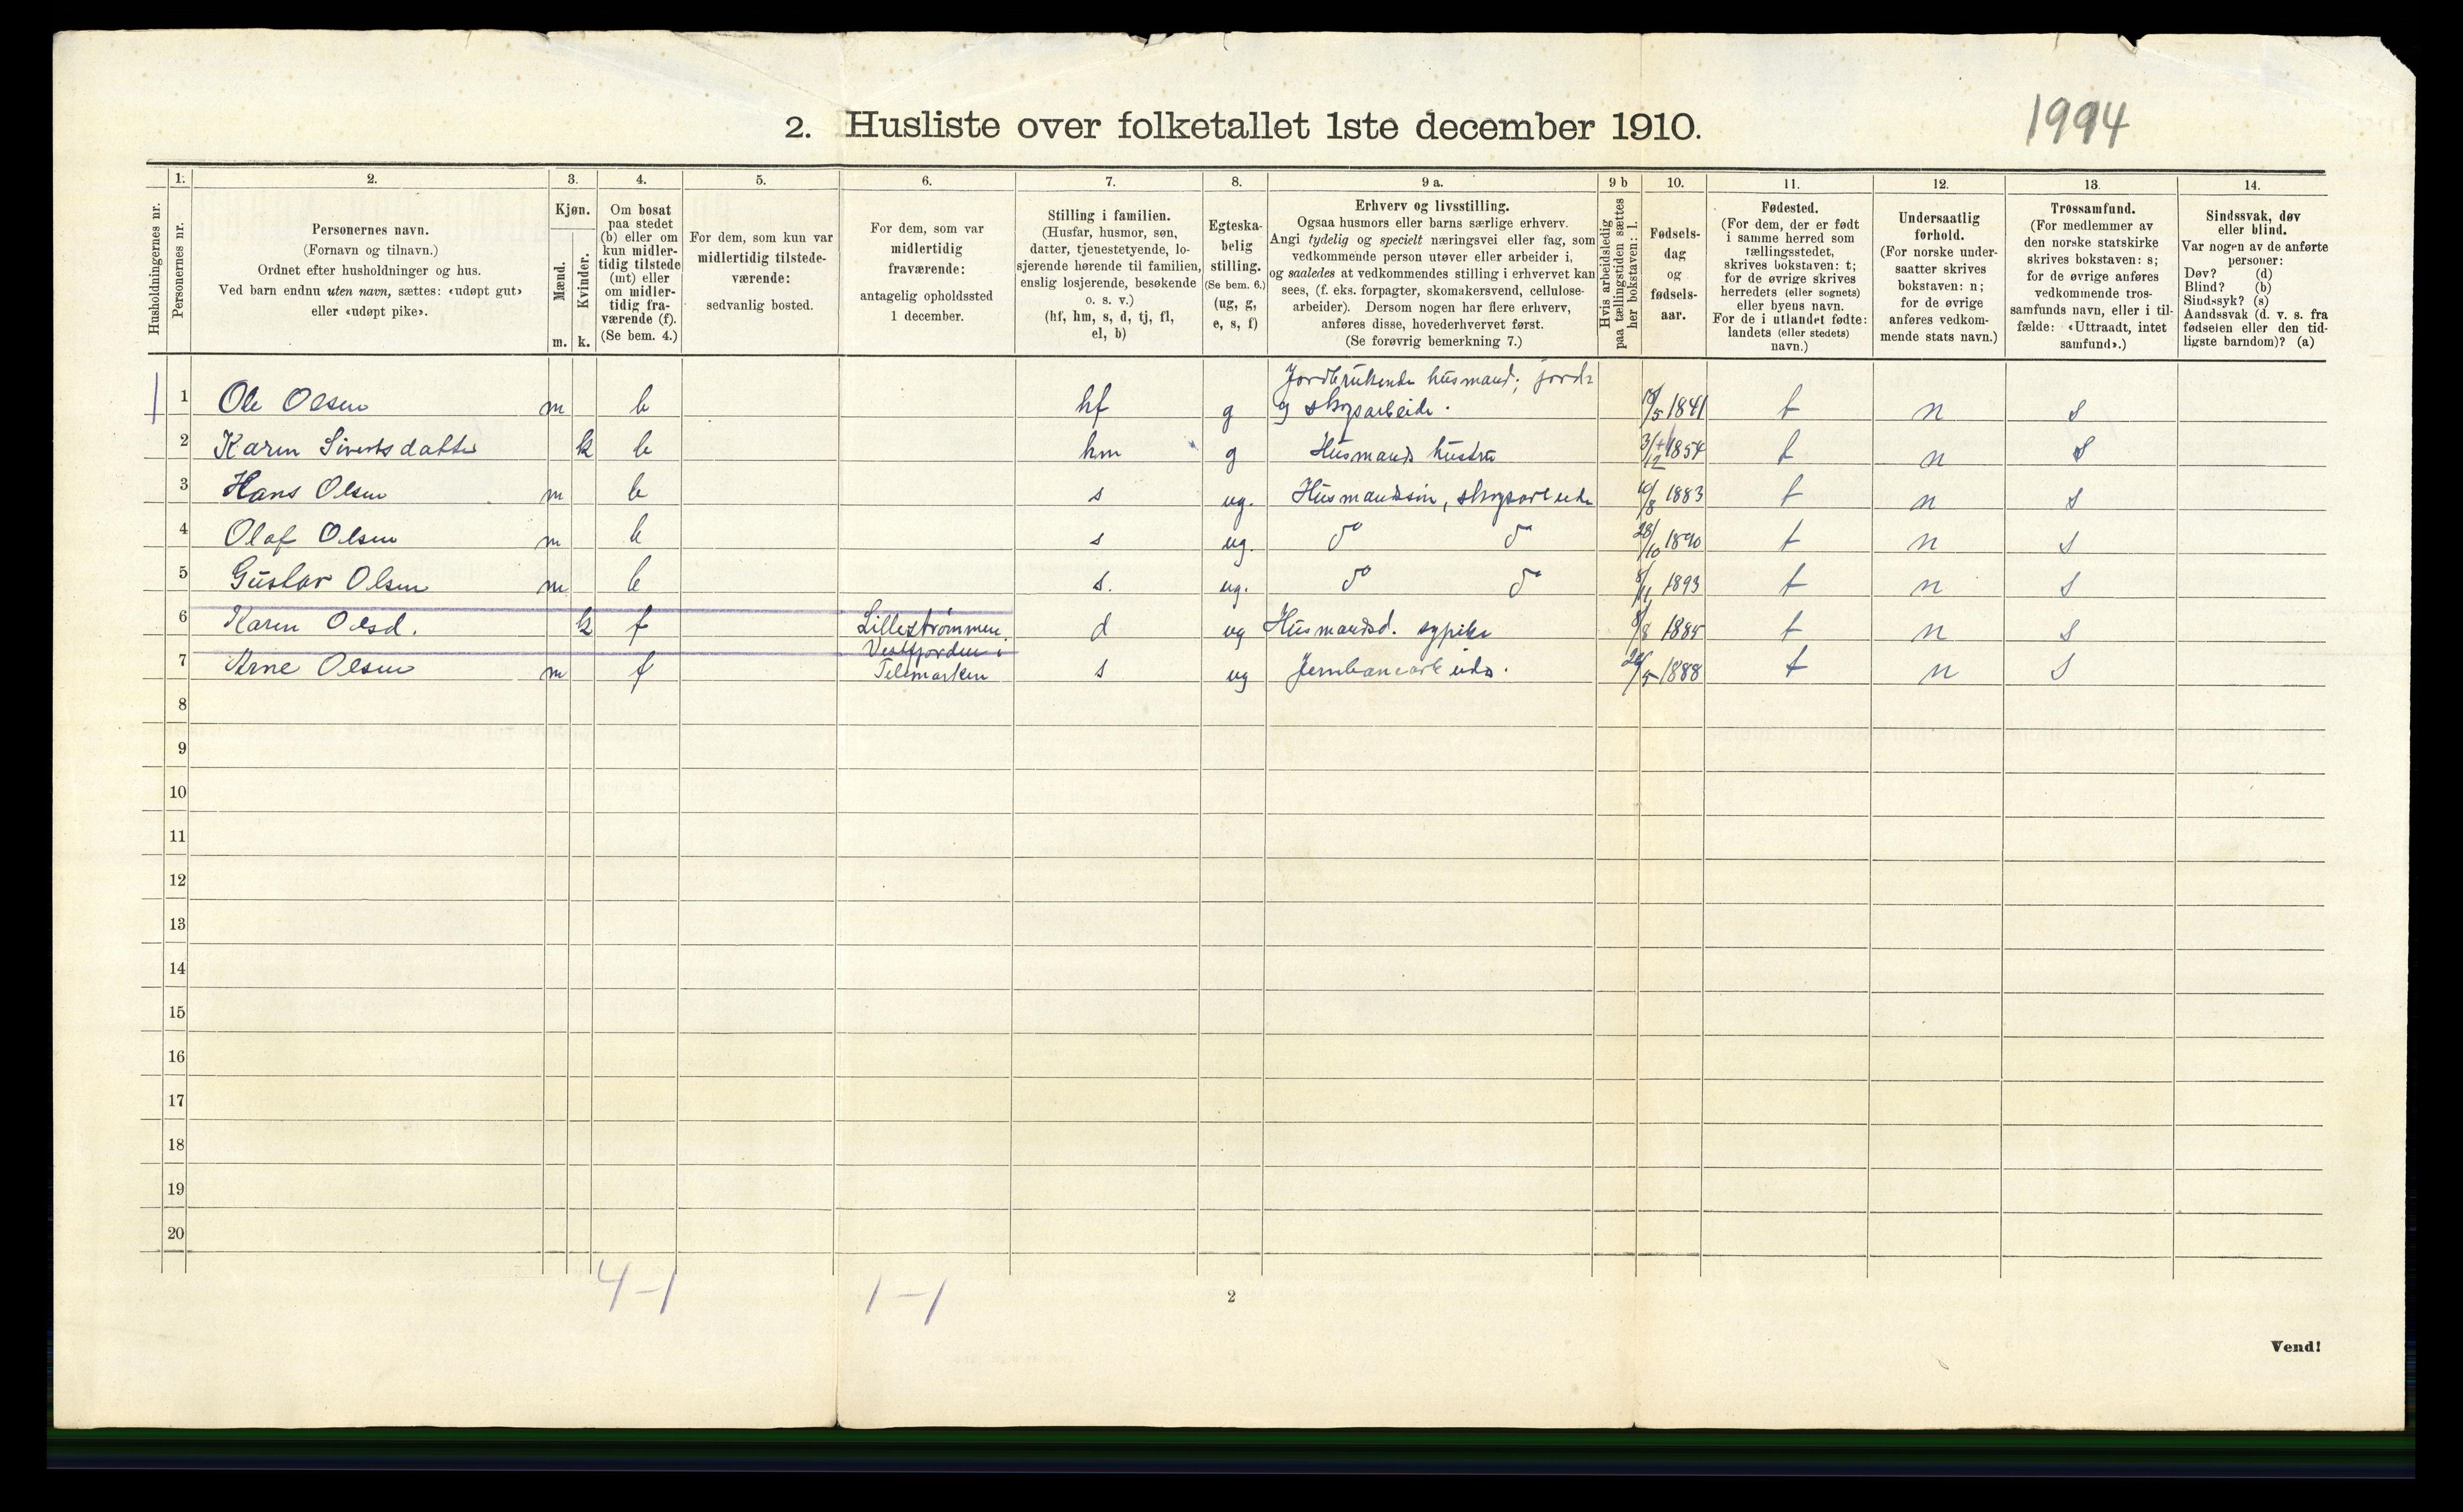 1994
2. Husliste over folketallet 1ste december 1910.
Husholdningernes nr.
1.
Personernes nr.
2.
Personernes navn.
(Fornavn og tilnavn.)
Ordnet efter husholdninger og hus.
Ved barn endnu uten navn, sættes: «udøpt gut»
eller «udøpt pike».
3.
Kjøn.
Mænd.
Kvinder.
m. k.
4.
Om bosat
paa stedet
(b) eller om
kun midler-
tidig tilstede
(mt) eller
om midler-
tidig fra-
værende (f).
(Se bem. 4.)
5.
For dem, som kun var
midlertidig tilstede-
værende:
sedvanlig bosted.
6.
For dem, som var
midlertidig
fraværende:
antagelig opholdssted
1 december.
7.
Stilling i familien.
(Husfar, husmor, søn,
datter, tjenestetyende, lo-
sjerende hørende til familien,
enslig losjerende, besøkende
o. s. v.)
(hf, hm, s, d, tj, fl,
el, b)
8.
Egteska-
belig
stilling.
(Se bem. 6.)
(ug, g,
e, s, f)
9 a.
Erhverv og livsstilling.
Ogsaa husmors eller barns særlige erhverv.
Angi tydelig og specielt næringsvei eller fag, som
vedkommende person utøver eller arbeider i,
og saaledes at vedkommendes stilling i erhvervet kan
sees, (f. eks. forpagter, skomakersvend, cellulose-
arbeider). Dersom nogen har flere erhverv,
anføres disse, hovederhvervet først.
(Se forøvrig bemerkning 7.)
9 b
Hvis arbeidsledig
paa tællingstiden sættes
her bokstaven: l.
10.
Fødsels-
dag
og
fødsels-
aar.
11.
Fødested.
(For dem, der er født
i samme herred som
tællingsstedet,
skrives bokstaven: t;
for de øvrige skrives
herredets (eller sognets)
eller byens navn.
For de i utlandet fødte:
landets (eller stedets)
navn.)
12.
Undersaatlig
forhold.
(For norske under-
saatter skrives
bokstaven: n;
for de øvrige
anføres vedkom-
mende stats navn.)
13.
Trossamfund.
(For medlemmer av
den norske statskirke
skrives bokstaven: s;
for de øvrige anføres
vedkommende tros-
samfunds navn, eller i til-
fælde: «Uttraadt, intet
samfund».)
14.
Sindssvak, døv
eller blind.
Var nogen av de anførte
personer:
Døv? (d)
Blind? (b)
Sindssyk? (s)
Aandssvak (d. v. s. fra
fødselen eller den tid-
ligste barndom)? (a)
Jordbrukende husmand; jord-
1 Ole Olsen m b hf g og skogsarbeide. 1841 t n s
2 Karen Sivertsdatter k b hm g Husmands hustru 1854 t n s
3 Hans Olsen m b s ug. Husmandssøn, skogsarbeide 1883 t n s
4 Olaf Olsen m b s ug. do do 28/10 1890 t n s
5 Gustav Olsen m b s. ug. do do 8/11 1893 t n s
6 Karen Olsd. k f Lillestrømmen. d ug Husmandsd. sypike 8/8 1885 t n s
Vestfjorden i
7 Arne Olsen m f Telemarken s ug Jernbanearbeide. 1888 t n s
8
9
10
11
12
13
14
15
16
17
18
19
20
4-1 1-1
2
Vend!